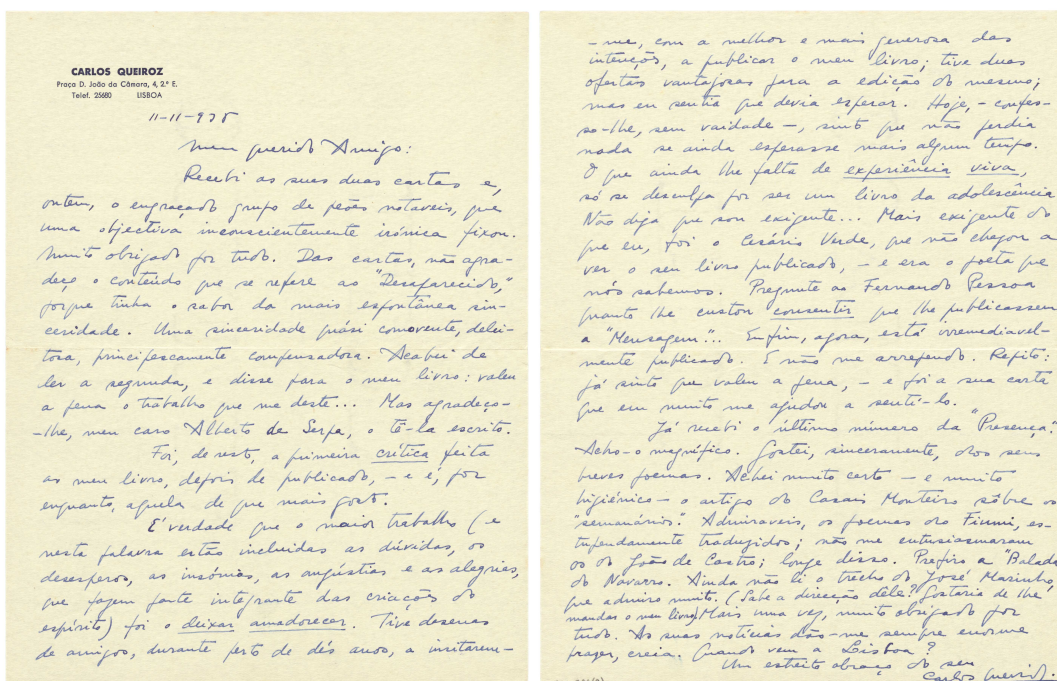 CARLOS QUEIROZ
Praça D. João da Câmara, 4, 2.º E.
Telef. 25680 LISBOA
11-11-935
Meu querido Amigo:
Recebi as suas duas cartas e,
ontem, o engraçado grupo de peões notaveis, que
uma objectiva inconscientemente irónica fixou.
Muito obrigado por tudo. Das cartas, não agra-
deço o conteúdo que se refere ao "Desaparecido,"
porque tinha o sabor da mais espontânea sin-
ceridade. Uma sinceridade quási comovente, delei-
tosa, principescamente compensadora. Acabei de
ler a segunda, e disse para o meu livro: valeu
a pena o trabalho que me deste... Mas agradeço-
-lhe, meu caro Alberto de Serpa, o tê-la escrito.
Foi, de resto, a primeira crítica feita
ao meu livro, depois de publicado, – e é, por
enquanto, aquela de que mais gosto.
É verdade que o maior trabalho (e
nesta palavra estão incluidas as dúvidas, os
desesperos, as insónias, as angústias e as alegrias,
que fazem parte integrante das criações do
espírito) foi o deixar amadorecer. Tive desenas
de amigos, durante perto de dés anos, a insitarem-
-me, com a melhor e mais generosa das
intenções, a publicar o meu livro; tive duas
ofertas vantajosas para a edição do mesmo;
mas eu sentia que devia esperar. Hoje, – confes-
so-lhe, sem vaidade –, sinto que não perdia
nada se ainda esperasse mais algum tempo.
O que ainda lhe falta de experiência viva,
só se desculpa por ser um livro da adolescência.
Não diga que sou exigente... Mais exigente do
que eu, foi o Cesário Verde, que não chegou a
ver o seu livro publicado, – e era o poeta que
nós sabemos. Pregunte ao Fernando Pessoa
quanto lhe custou consentir que lhe publicassem
a "Mensagem"... Enfim, agora, está irremediavel-
mente publicado. E não me arrependo. Repito:
já sinto que valeu a pena, – e foi a sua carta
que em muito me ajudou a sentí-lo.
Já recebi o último número da "Presença".
Acho-o magnífico. Gostei, sinceramente, dos seus
breves poemas. Achei muito certo – e muito
higiénico – o artigo do Casais Monteiro sôbre os
"semanários." Admiraveis, os poemas do Fiumi, es-
tupendamente traduzidos; não me entusiasmaram
os do João de Castro; longe disso. Prefiro a "Balada"
do Navarro. Ainda não li o trecho do José Marinho,
que admiro muito. (Sabe a direcção dele? Gostaria de lhe
mandar o meu livro) Mais uma vez, muito obrigado por
tudo. As suas notícias dão-me sempre enorme
prazer, creia. Quando vem a Lisboa?
Um estreito abraço do seu
Carlos Queiroz.